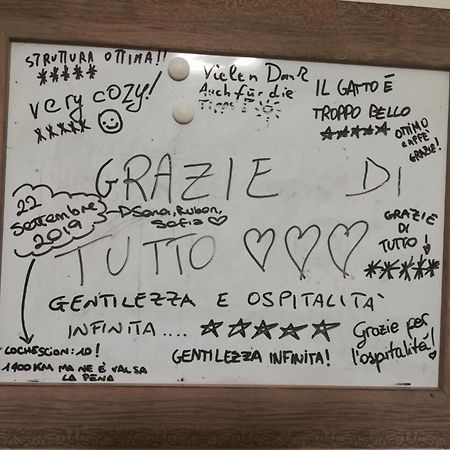 STRUTTURA OTTIMA!!
very cozy!
Vielen Dank
Auch für die
IL GATTO È
TROPPO BELLO
OTTIMO
CAFFE'
GRAZIE!
GRAZIE DI
TUTTO
22
Settembre
2019
Ruben,
Sofia
GRAZIE
DI
TUTTO
GENTILEZZA E OSPITALITA'
INFINITA....
GENTILEZZA INFINITA!
Grazie per
l'ospitalità!
LOCHESCION: 10!
1400KM MA NE È VALSA
LA PENA